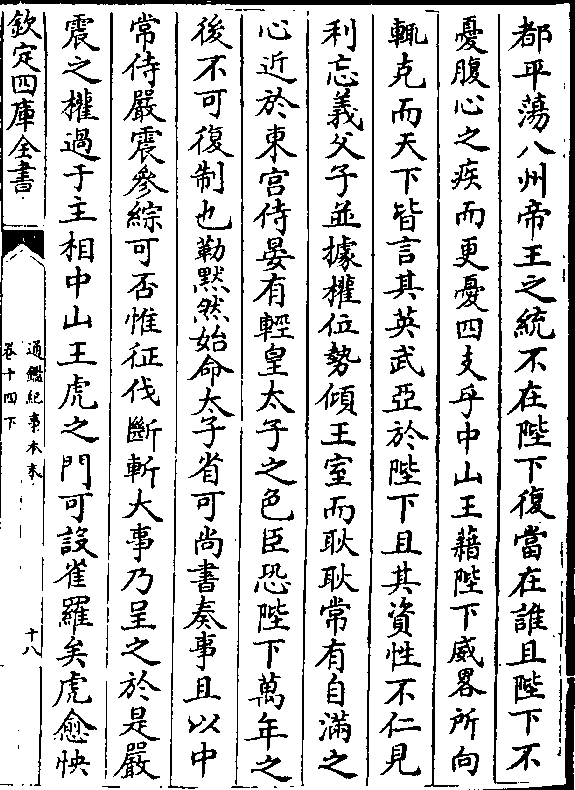 都平蕩八州帝王之統不在陛下復當在誰且陛下不
憂腹心之疾而更憂四支乎中山王藉陛下威畧所向
輒克而天下皆言其英武亞於陛下且其資性不仁見
利忘義父子並據權位勢傾王室而耿耿常有自滿之
心近於東宮侍宴有輕皇太子之色臣恐陛下萬年之
後不可復制也勒默然始命太子省可尚書奏事且以中
常侍嚴震參綜可否惟征伐斷斬大事乃呈之於是嚴
震之權過于主相中山王虎之門可設雀羅矣虎愈怏
欽定四庫全書
通鑑紀事本末
卷十四下
十八